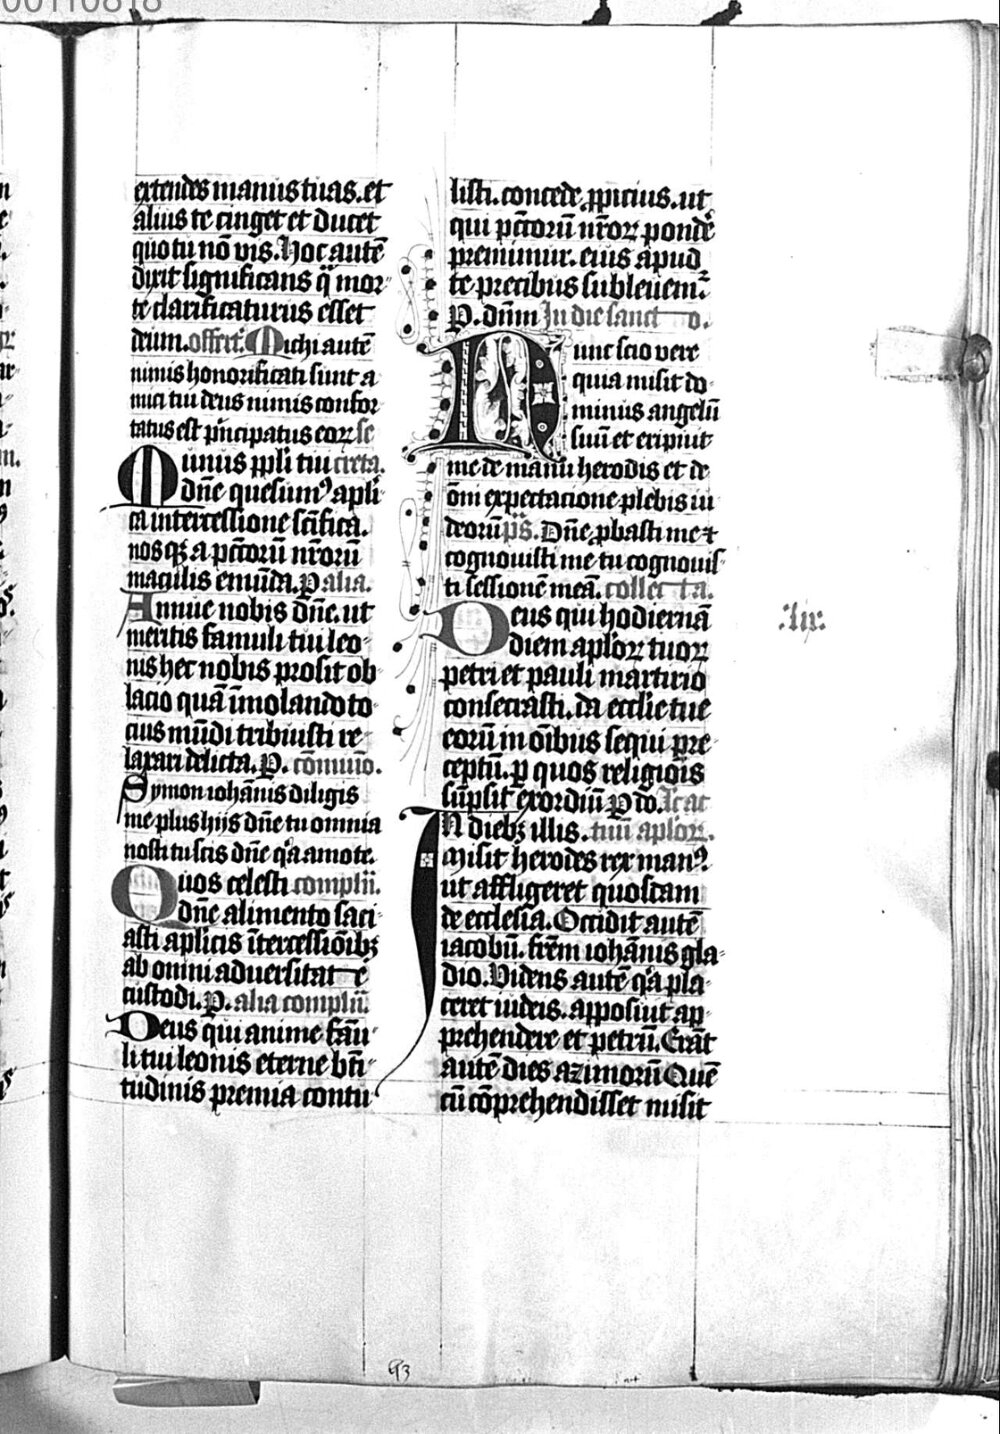 00110818
extendes manus tuas. et
alius te cinget et ducet
quo tu nō vis. Hoc autē
dixit significans q̄ mor-
te clarificaturus esset
deum. offert̄. Michi autē
nimis honorificati sunt a
mici tui deus nimis confor
tatus est p̄ncipatus eoꝝ se
Munus ppl̄i tui creta.
dn̄e quesum⁹ apl̄i
ca intercessione sc̄ifica.
nosqꝫ a pctōrū nr̄orū
maculis emūda. P alia.
Annue nobis dn̄e. ut
meritis famuli tui leo-
nis hec nobis prosit ob-
lacio quā īmolando to-
cius mūdi tribuisti re-
laxari delicta. P. cōmuīo.
Symon iohānis diligis
me plus hijs dn̄e tu omnia
nosti tu scis dn̄e q̄a amo te.
Quos celesti complīī.
dn̄e alimento saci-
asti aplicis ītercessiōibꝫ
ab omni aduersitate
custodi. P. alia complīī.
Deus qui anime fāū-
li tui leonis eterne bt̄i-
tudinis premia contu
listi. concede. ꝓpicius. ut
qui pctōrū nr̄oꝝ pondē
premimur. eius apud
te precibus subleuem̄.
P. dn̄m In die sancto.
Nunc scio vere
quia misit do-
minus angelū
suū et eripuit
me de manu herodis et de
ōni expectacione plebis iu
deorū p̄s. Dn̄e. ꝓbasti me ⁊
cognouisti me tu cognouis-
ti sessionē meā. collecta.
Deus qui hodiernā
diem aplōꝝ tuoꝝ
petri et pauli martirio
consecrasti. da eccl̄ie tue
eorū in oībus sequi pre-
ceptū. p quos religiois
sūpsit exordiū P do. Lcāc
In diebꝫ illis. tuū aplōꝝ.
Misit herodes rex man⁹.
ut affligeret quosdam
de ecclesia. Occidit autē
iacobū. frēm iohānis gla-
dio. Videns autē q̄a pla-
ceret iudeis. apposuit ap-
prehendere et petrū. Erāt
autē dies azimorū Quē
cū cōprehendisset misit
.lix.
93